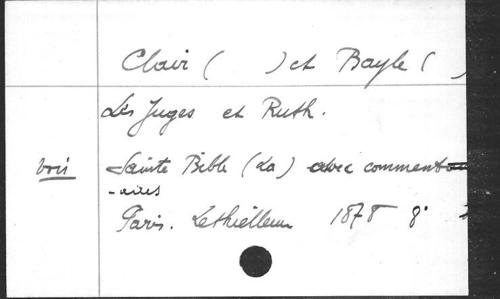 Clair (        ) et Bayle (      )
Les Juges et Ruth.
voir Sainte Bible (La) avec comment-
-aires
Paris. Lethielleux 1878 8°